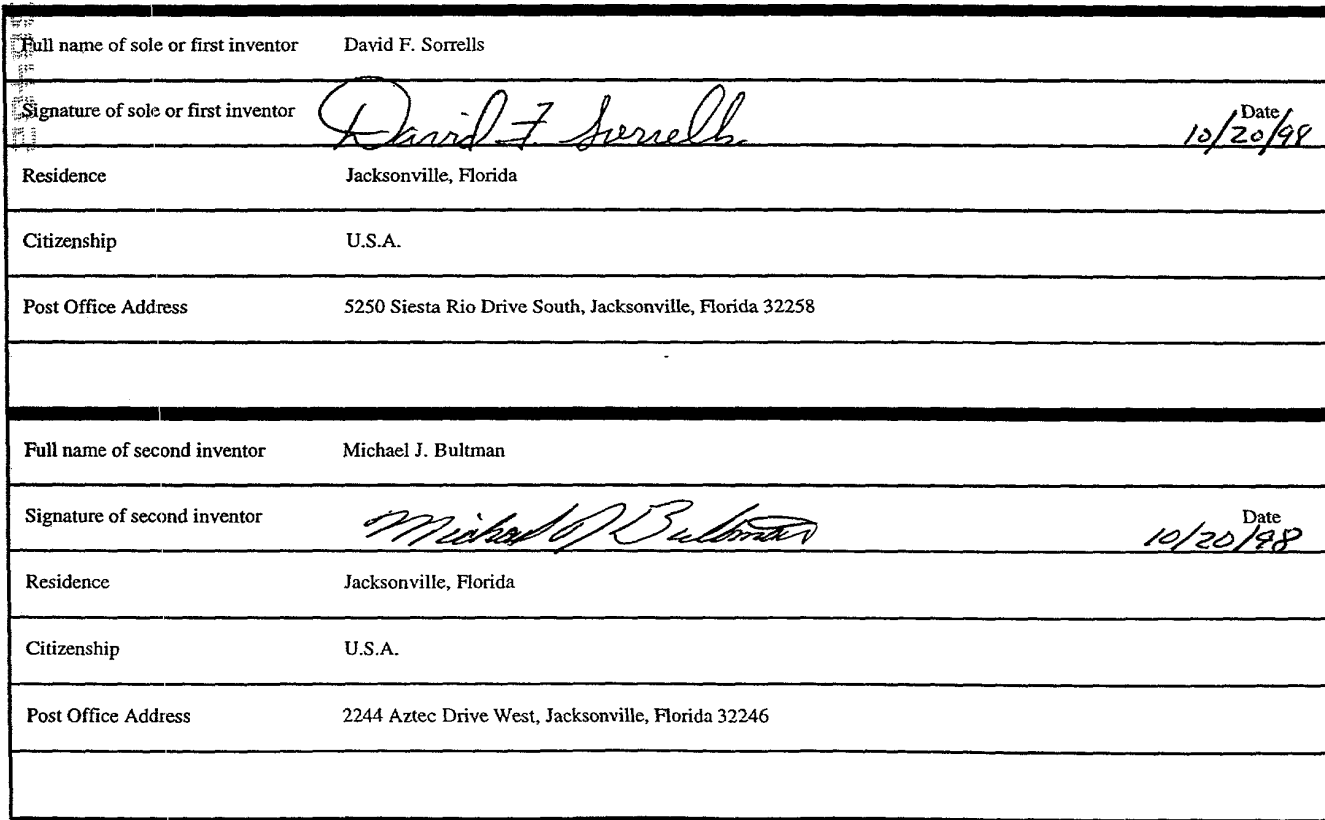 Full name of sole or first inventor David F. Sorrells
Signature of sole or first inventor David F Sorrells Date 10/20/98
Residence Jacksonville, Florida
Citizenship U.S.A.
Post Office Address 5250 Siesta Rio Drive South, Jacksonville, Florida 32258
Full name of second inventor Michael J. Bultman
Signature of second inventor Michael J Bultman Date 10/20/98
Residence Jacksonville, Florida
Citizenship U.S.A.
Post Office Address 2244 Aztec Drive West, Jacksonville, Florida 32246